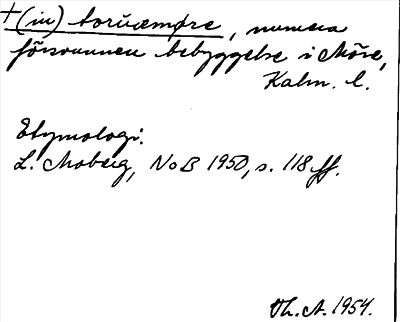 + (in) boruæmøre, numera
försvunnen bebyggelse i Möre,
Kalm. l.
Etymologi:
L. Moberg, NoB 1950, s. 118 ff.
Th. A. 1954.